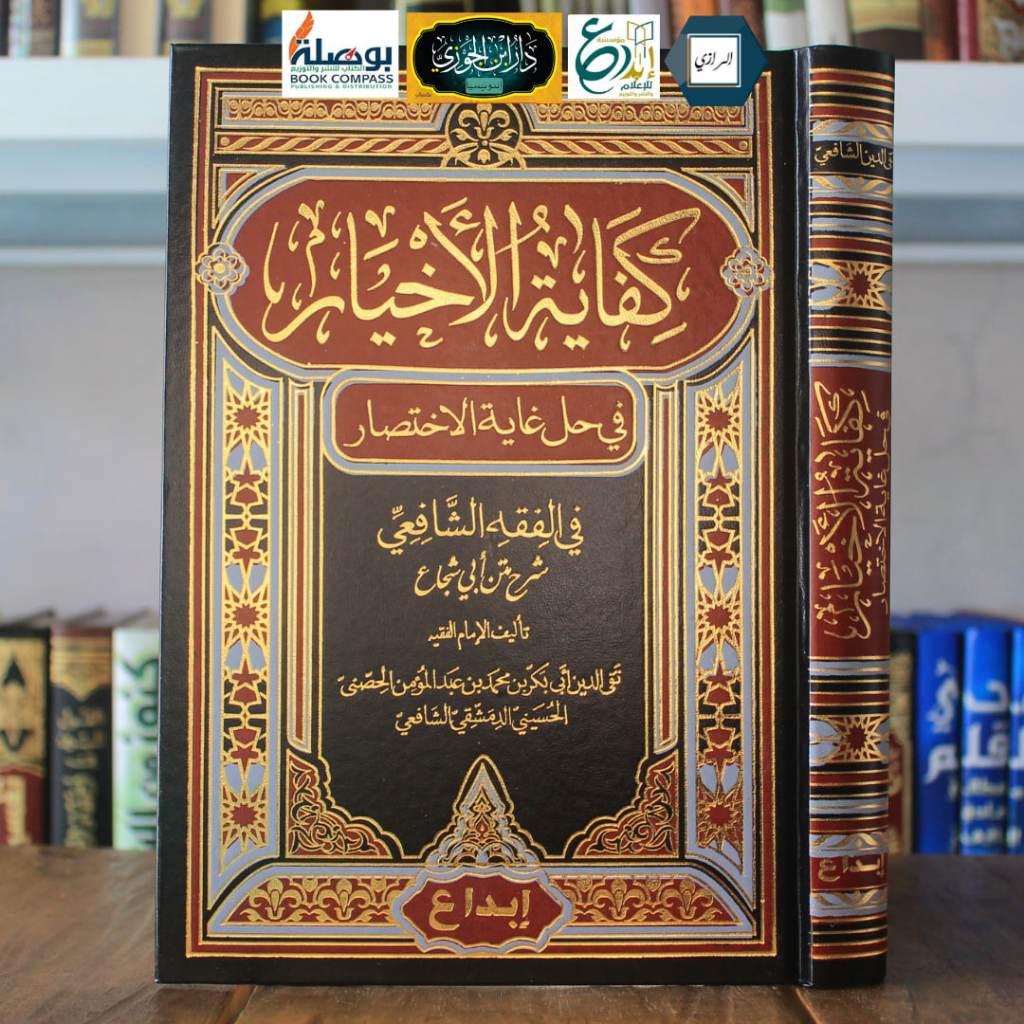 بوصلة
الكتاب للنشر والتوزيع
BOOK COMPASS
PUBLISHING & DISTRIBUTION
دار ابن الجوزي
مؤسسة
إبداع
للإعلام
والنشر والتوزيع
الرازي
كِفَايَةُ الأَخْيَار
في حل غاية الاختصار
في الفِقهِ الشَّافِعِيِّ
شرح متن أبي شجاع
تأليف الإمام الفقيه
تقي الدين أبي بكر بن محمد بن عبد المؤمن الحصني
الحسيني الدمشقي الشافعي
إبداع
تقي الدين الشافعي
كِفَايَةُ الأَخْيَار
في حل غاية الاختصار
إبداع